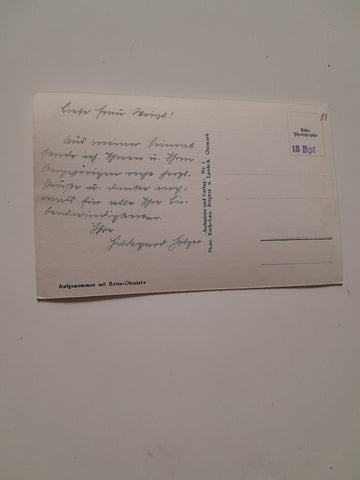 Liebe Frau Weigl!
Aus meiner Heimat
sende ich Ihnen u. Ihren
Angehörigen recht herzl.
Grüße u. danke noch-
mals für alle Ihre Lie-
benswürdigkeiten.
Ihre
Hildegard
Aufgenommen mit Zeiss-Objektiv
Aufnahme und Verlag
Photo
Landeck, Ostmark
Echte
Photographie
18 Rpf